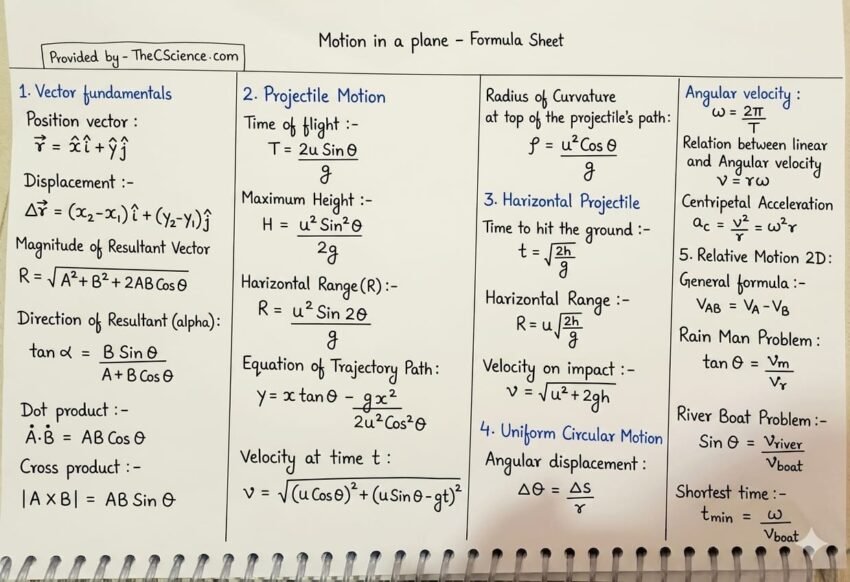 Motion in a plane - Formula Sheet
Provided by - TheCScience.com
1. Vector fundamentals
Position vector :
r⃗ = x̂î + ŷĵ
Displacement :-
Δr⃗ = (x₂-x₁)î + (y₂-y₁)ĵ
Magnitude of Resultant Vector
R = √(A² + B² + 2AB Cos θ)
Direction of Resultant (alpha):
tan α = B Sin θ / A + B Cos θ
Dot product :-
Ȧ·Ḃ = AB Cos θ
Cross product :-
|A × B| = AB Sin θ
2. Projectile Motion
Time of flight :-
T = 2u Sin θ / g
Maximum Height :-
H = u² Sin² θ / 2g
Harizontal Range (R) :-
R = u² Sin 2θ / g
Equation of Trajectory Path:
y = x tan θ - gx² / 2u² Cos² θ
Velocity at time t :
v = √((u Cos θ)² + (u Sin θ - gt)²)
Radius of Curvature
at top of the projectile's path:
ρ = u² Cos θ / g
3. Horizontal Projectile
Time to hit the ground :-
t = √(2h / g)
Horizontal Range :-
R = u√(2h / g)
Velocity on impact :-
v = √(u² + 2gh)
4. Uniform Circular Motion
Angular displacement :
Δθ = Δs / r
Angular velocity :
ω = 2π / T
Relation between linear
and Angular velocity
v = rω
Centripetal Acceleration
a_c = v² / r = ω² r
5. Relative Motion 2D:
General formula :-
V_AB = V_A - V_B
Rain Man Problem :
tan θ = V_m / V_r
River Boat Problem :-
Sin θ = V_river / V_boat
Shortest time :-
t_min = ω / V_boat